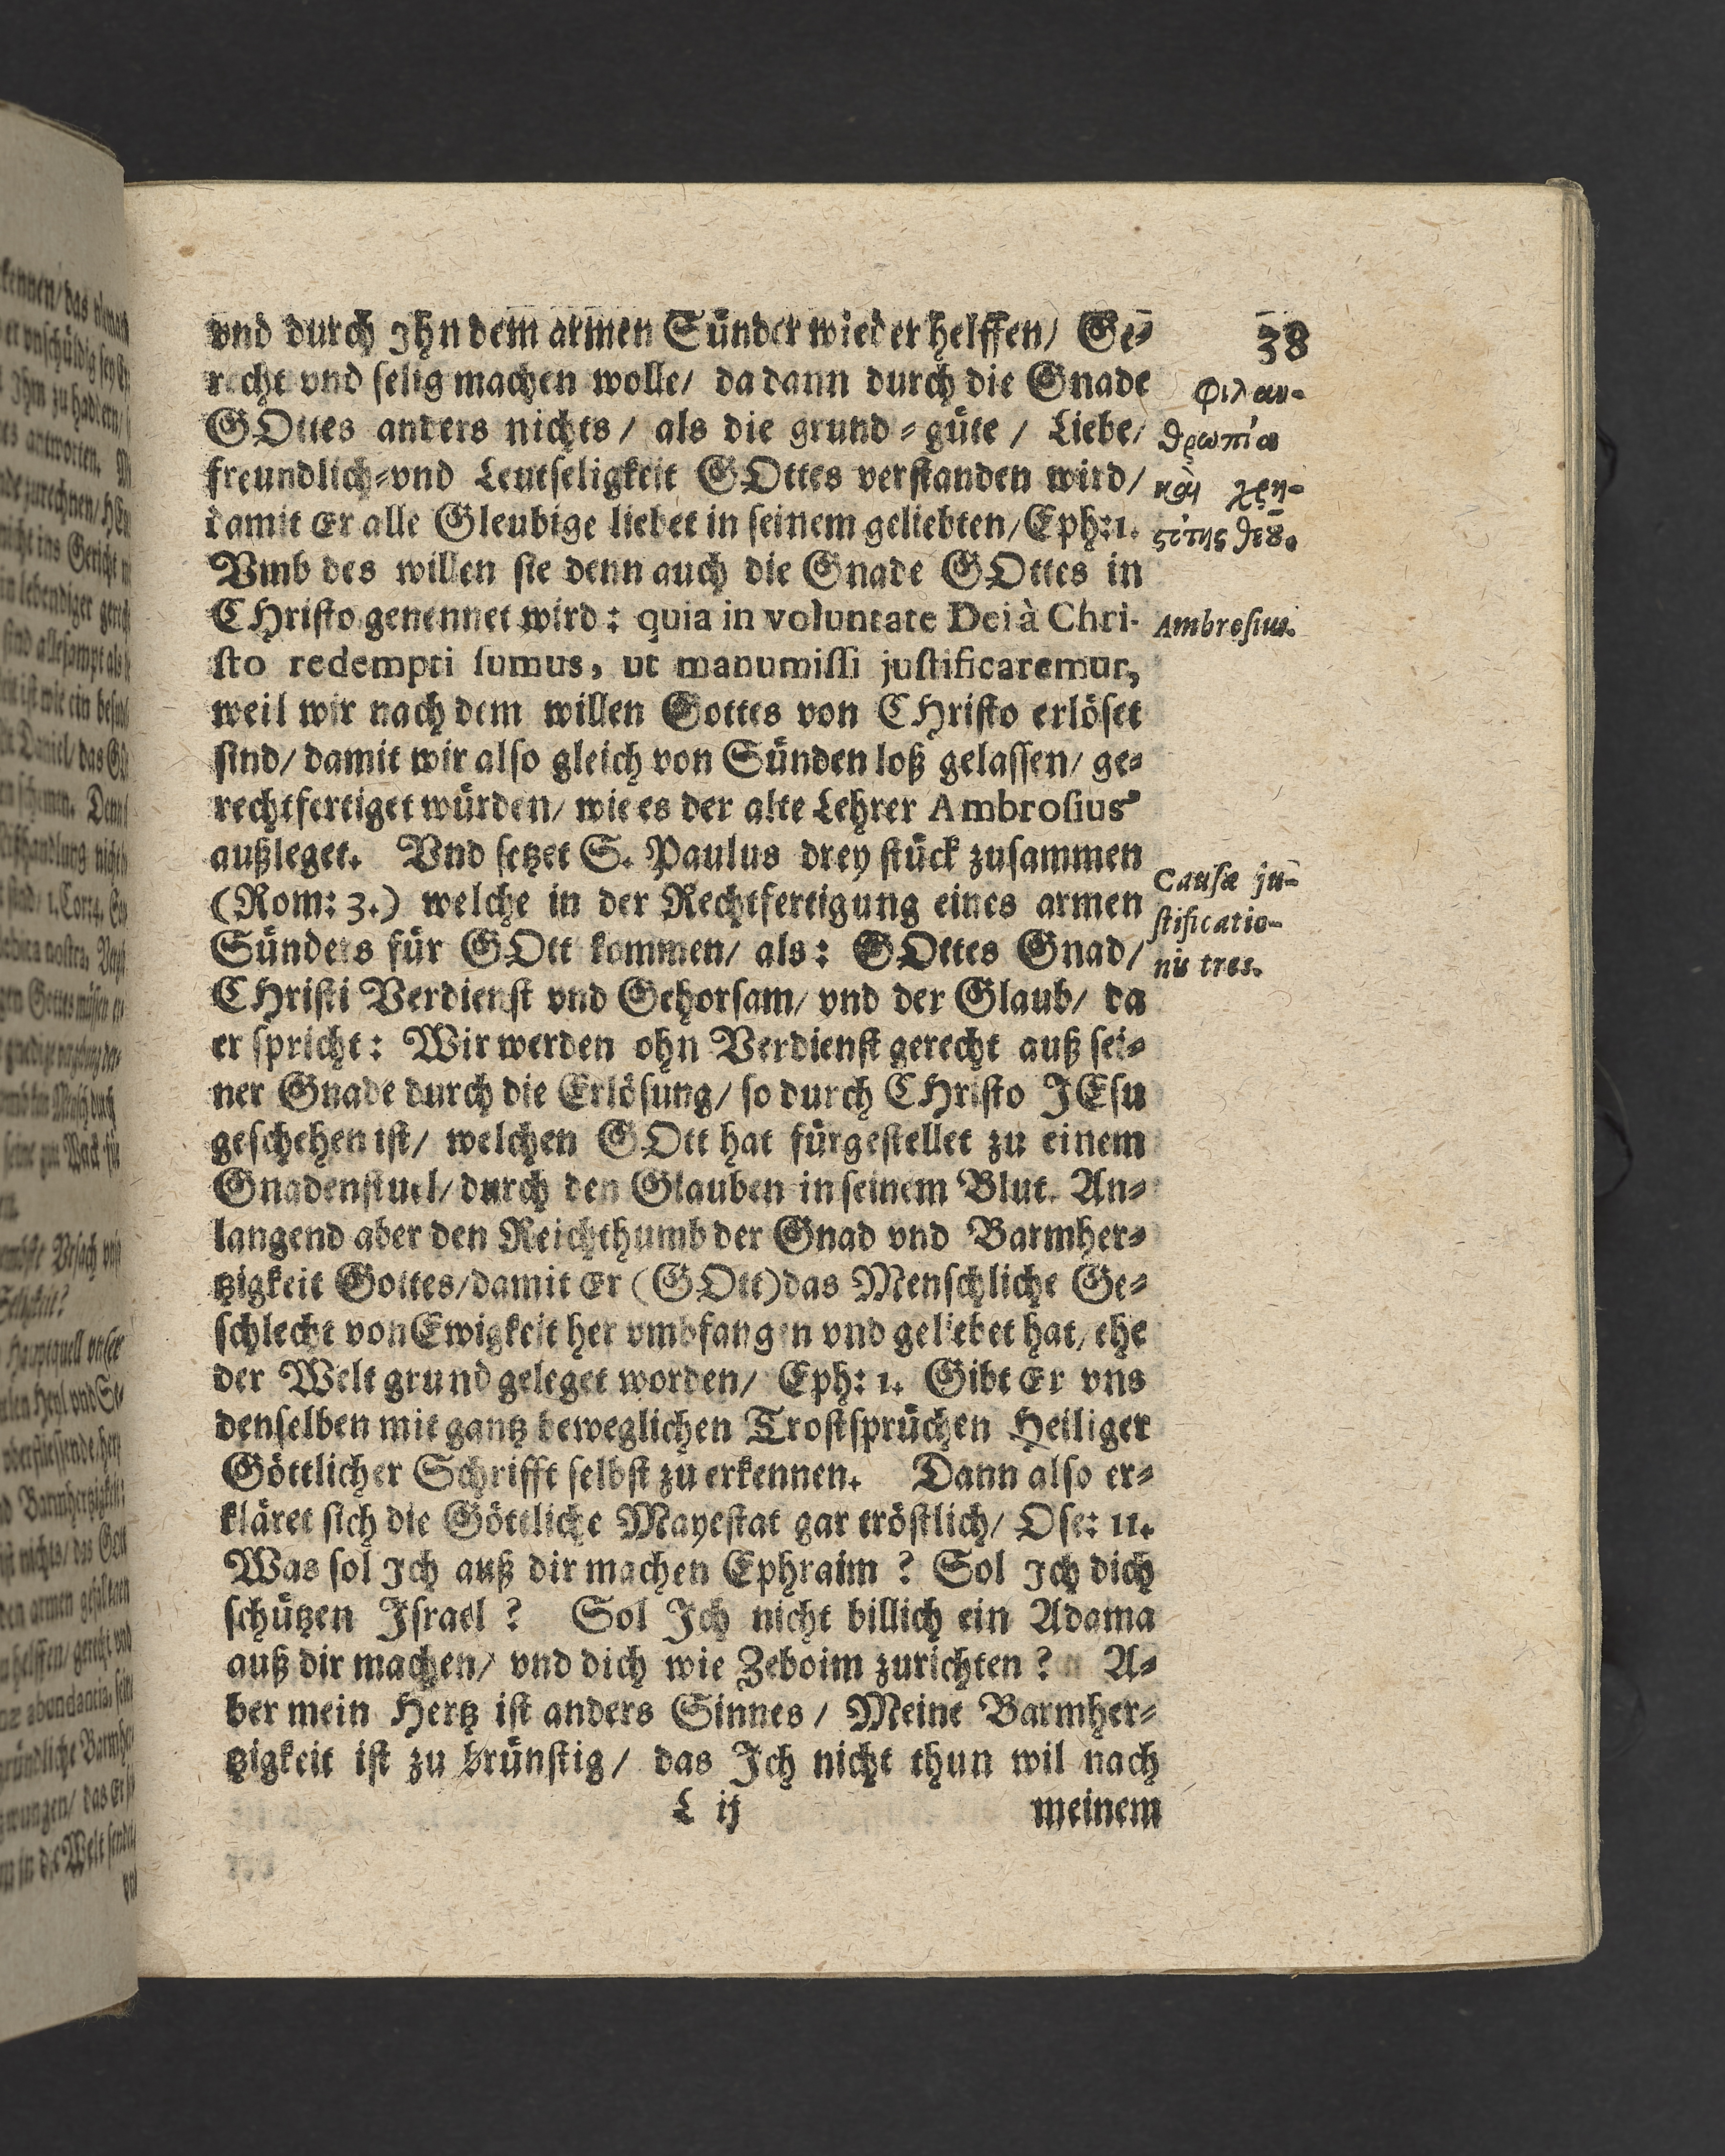 38
vnd durch Jhn dem armen Sünder wieder helffen/ Ge-
recht vnd selig machen wolle/ da dann durch die Gnade
GOttes anders nichts/ als die grund-güte/ Liebe/
freundlich-vnd Leutseligkeit GOttes verstanden wird/
damit Er alle Gleubige liebet in seinem geliebten/Eph:1.
Vmb des willen sie denn auch die Gnade GOttes in
CHristo genennet wird: quia in voluntate Dei à Chri-
sto redempti sumus, ut manumissi justificaremur,
weil wir nach dem willen Gottes von CHristo erlöset
sind/ damit wir also gleich von Sünden loß gelassen/ ge-
rechtfertiget würden/ wie es der alte Lehrer Ambrosius
außleget. Vnd setzet S. Paulus drey stück zusammen
(Rom: 3.) welche in der Rechtfertigung eines armen
Sünders für GOtt kommen/ als: GOttes Gnad/
CHristi Verdienst vnd Gehorsam/ vnd der Glaub/ da
er spricht: Wir werden ohn Verdienst gerecht auß sei-
ner Gnade durch die Erlösung/ so durch CHristo JEsu
geschehen ist/ welchen GOtt hat fürgestellet zu einem
Gnadenstuel/ durch den Glauben in seinem Blut. An-
langend aber den Reichthumb der Gnad vnd Barmher-
tzigkeit Gottes/damit Er (GOtt)das Menschliche Ge-
schlecht von Ewigkeit her vmbfangen vnd geliebet hat/ ehe
der Welt grund geleget worden/ Eph: 1. Gibt Er vns
denselben mit gantz beweglichen Trostsprüchen Heiliger
Göttlicher Schrifft selbst zu erkennen. Dann also er-
kläret sich die Göttliche Mayestat gar tröstlich/ Ose: 11.
Was sol Jch auß dir machen Ephraim? Sol Jch dich
schützen Jsrael? Sol Jch nicht billich ein Adama
auß dir machen/ vnd dich wie Zeboim zurichten? A-
ber mein Hertz ist anders Sinnes/ Meine Barmher-
tzigkeit ist zu brünstig/ das Jch nicht thun wil nach
L ij meinem
φιλαν-
θρωπία
καὶ χρη-
ϛότης θεȣ͂.
Ambrosius.
Causæ ju-
stificatio-
nis tres.